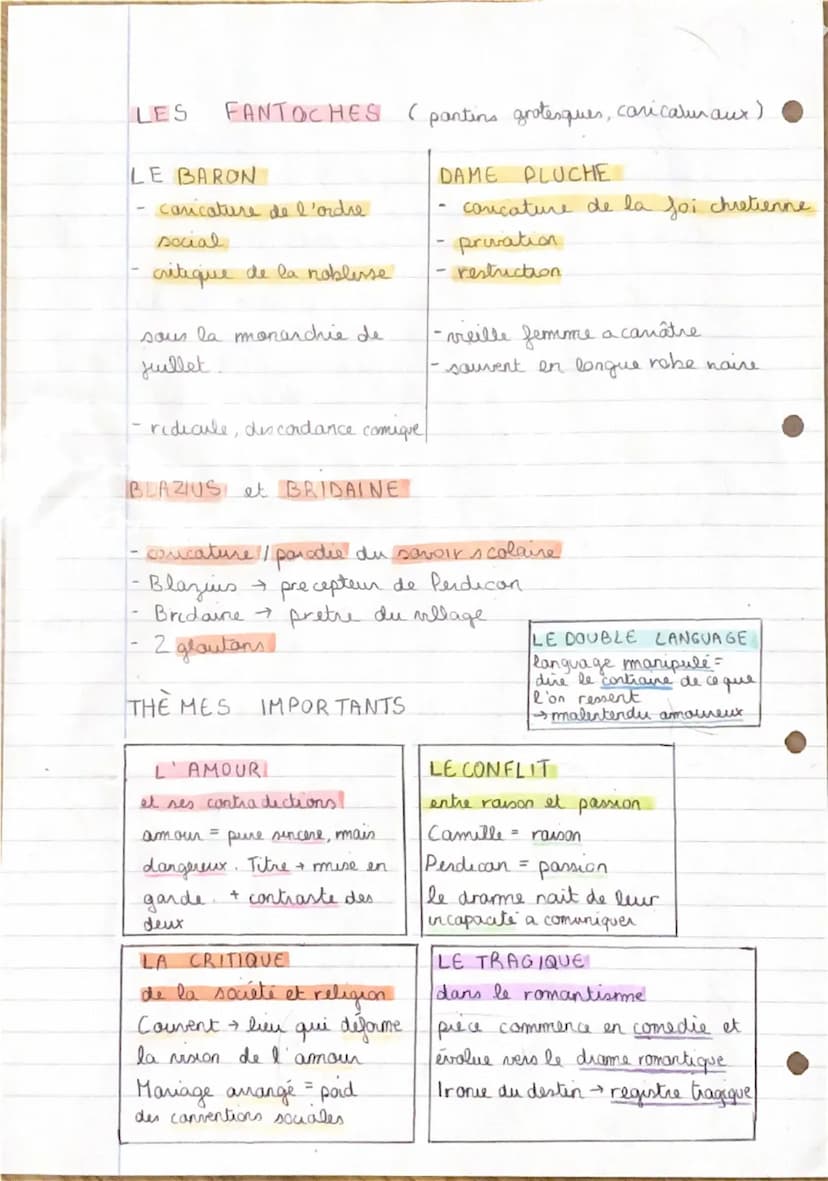 LES FANTOCHES (pantins grotesques, caricaturaux)
LE BARON
- caricature de l'ordre
social
- critique de la noblesse
sous la monarchie de
juillet.
- ridicule, discordance comique
DAME PLUCHE
- caricature de la foi chretienne
- privation
- restriction
- vieille femme acariâtre
- souvent en longue robe noire
BLAZIUS et BRIDAINE
- caricature / parodie du savoir scolaire
- Blazius → precepteur de Perdican
- Bridaine → pretre du village
- 2 gloutons
LE DOUBLE LANGUAGE
language manipulé =
dire le contraire de ce que
l'on ressent
→ malentendu amoureux
THÈMES IMPORTANTS
L'AMOUR
et ses contradictions
amour = pure sincere, mais
dangereux. Titre → mise en
garde. + contraste des
deux
LE CONFLIT
entre raison et passion
Camille = raison
Perdican = passion
le drame nait de leur
incapacité a comuniquer
LA CRITIQUE
de la société et religion
Couvent → lieu qui déforme
la vision de l'amour
Mariage arrangé = poid
des conventions sociales
LE TRAGIQUE
dans le romantisme
pièce commence en comedie et
évolue vers le drame romantique
Ironie du destin → registre tragique